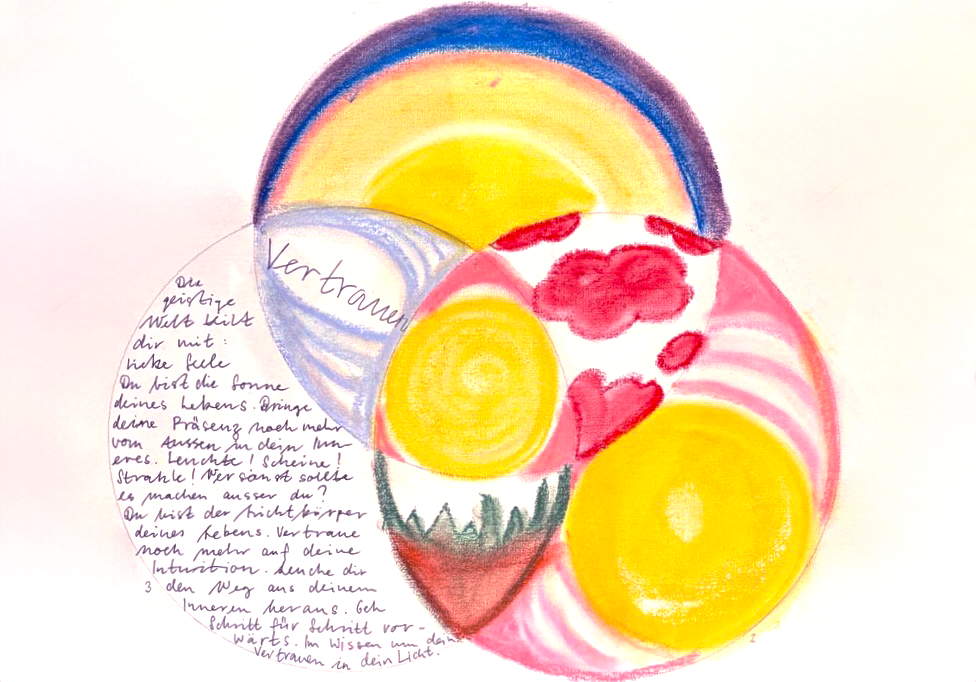 Vertrauen
Die
geistige
Welt teilt
dir mit:
liebe Seele
Du bist die Sonne
deines Lebens. Bringe
deine Präsenz noch mehr
vom Aussen in dein Inn-
eres. Leuchte! Scheine!
Strahle! Wer sonst sollte
es machen ausser du?
Du bist der Lichtkörper
deines Lebens. Vertraue
noch mehr auf deine
Intuition. Leuche dir
3 den Weg aus deinem
Inneren heraus. Geh
Schritt für Schritt vor-
wärts. Im Wissen um dein
Vertrauen in dein Licht.
2